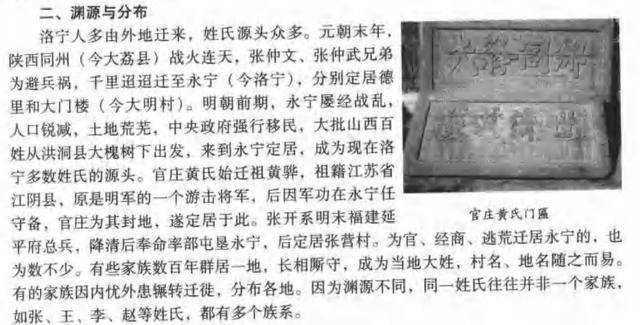 二、渊源与分布
洛宁人多由外地迁来，姓氏源头众多。元朝末年，
陕西同州（今大荔县）战火连天，张仲文、张仲武兄弟
为避兵祸，千里迢迢迁至永宁（今洛宁），分别定居德
里和大门楼（今大明村）。明朝前期，永宁屡经战乱，
人口锐减，土地荒芜，中央政府强行移民，大批山西百
姓从洪洞县大槐树下出发，来到永宁定居，成为现在洛
宁多数姓氏的源头。官庄黄氏始迁祖黄骅，祖籍江苏省
江阴县，原是明军的一个游击将军，后因军功在永宁任
守备，官庄为其封地，遂定居于此。张开系明末福建延
平府总兵，降清后奉命率部屯垦永宁，后定居张营村。为官、经商、逃荒迁居永宁的，也
为数不少。有些家族数百年群居一地，长相厮守，成为当地大姓，村名、地名随之而易。
有的家族因内忧外患辗转迁徙，分布各地。因为渊源不同，同一姓氏往往并非一个家族，
如张、王、李、赵等姓氏，都有多个族系。
官庄黄氏门匾